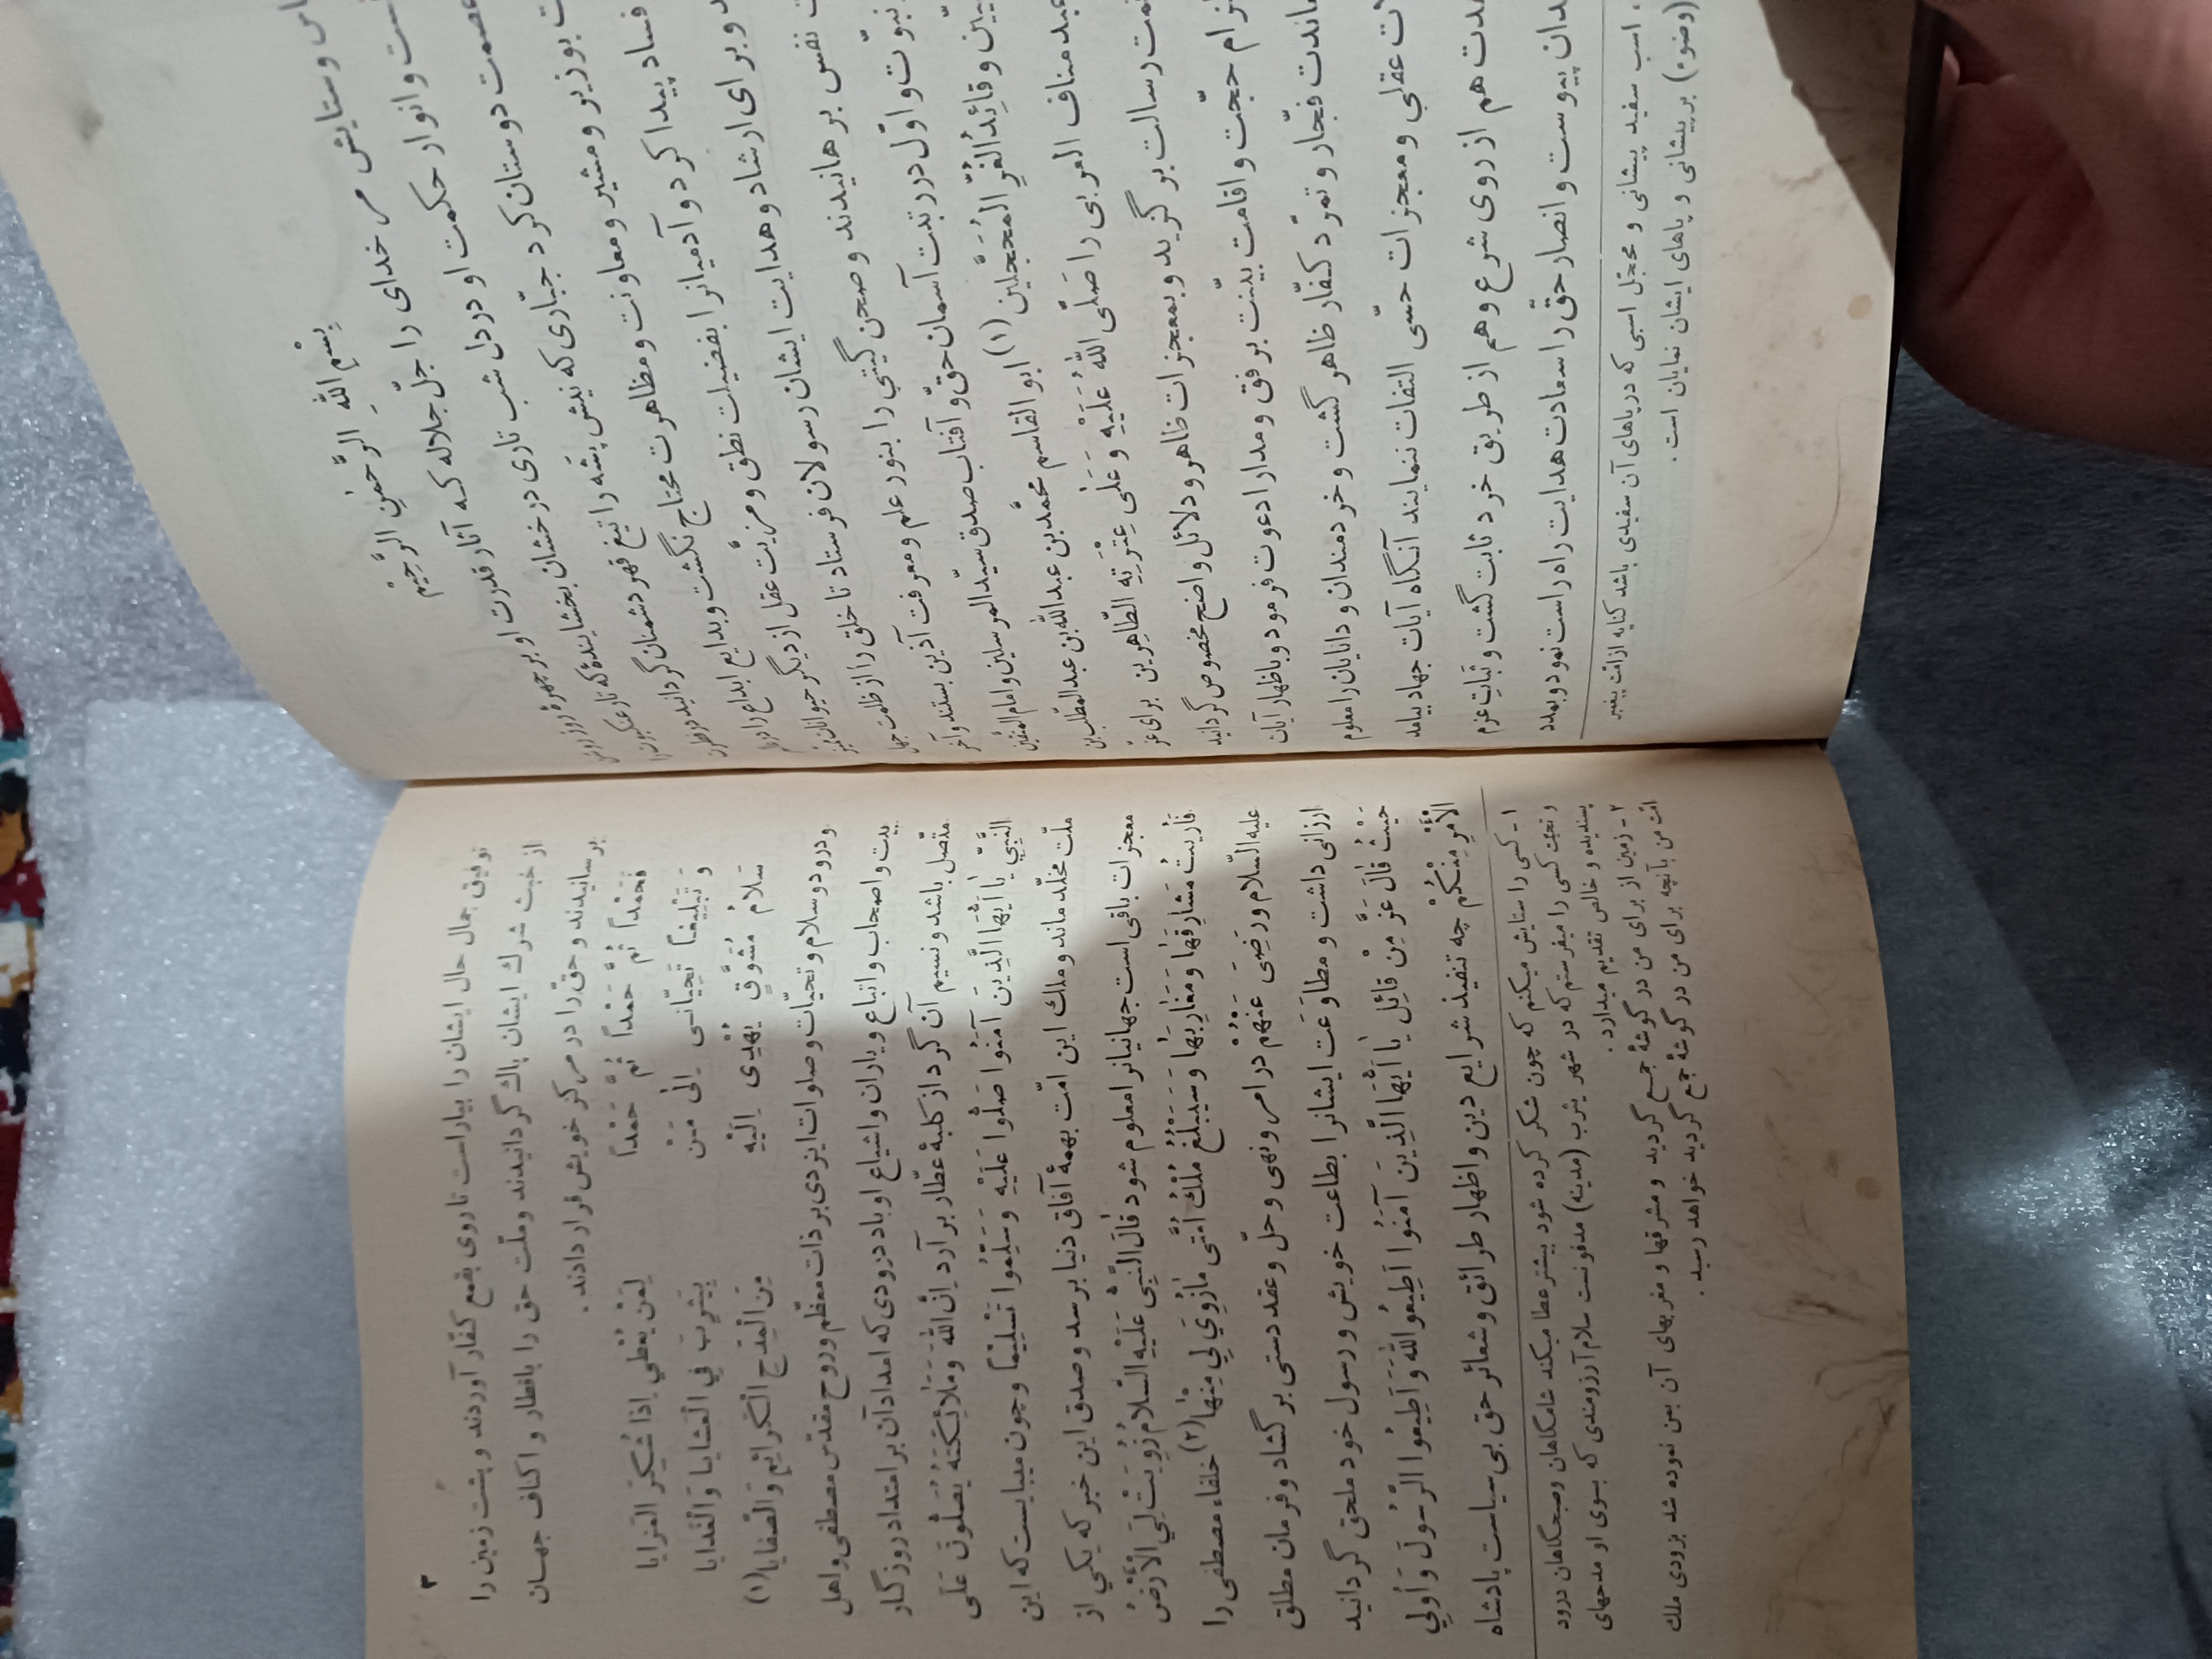 بِسْمِ اللهِ الرَّحْمٰنِ الرَّحِیْمِ
و ستایش مر خدای را جلّ جلاله که آثار قدرت او بر چهرهٔ روز روشن
و انوار حکمت او در دل شب تاری درخشان بخشایندهٔ که تار عنکبوت را
عصمت دوستان کرد جبّاری که نیش پشّه را تیغ قهر دشمنان گردانید در فطرت
بوزیر و مشیر و معاونت و مظاهرت محتاج نگشت و بدایع ابداع در عالم
فساد پیدا کرد و آدمیانرا بفضیلت نطق و مزیّت عقل از دیگر حیوانات ممیّز
و برای ارشاد و هدایت ایشان رسولان فرستاد تا خلق را از ظلمت جهل
نفس برهانیدند و صحن گیتی را بنور علم و معرفت آذین بستند و آخر
نبوّت و اوّل در رتبت آسمان حق و آفتاب صدق سیّد المرسلین و امام المتّقین
و قائِدُ الْغُرِّ الْمُحَجَّلین (۱) ابوالقاسم محمّد بن عبدالله بن عبدالمطّلب بن
عبد مناف العربی را صَلَّی اللهُ عَلَیْهِ وَ عَلٰی عِتْرَتِهِ الطّاهِرین برای عزّ
رسالت برگزید و بمعجزات ظاهر و دلائل واضح مخصوص گردانید
حجّت و اقامت بیّنت برفق و مدارا دعوت فرمود و باظهار آیات
فجّار و تمرّد کفّار ظاهر گشت و خردمندان و دانایان را معلوم
عقلی و معجزات حسّی التفات ننمایند آنگاه آیات جهاد بیامد
هم از روی شرع و هم از طریق خرد ثابت گشت و ثبات عزم
پیوست و انصار حق را سعادت هدایت راه راست نمود و بمدد
اسب سفید پیشانی و محجّل اسبی که در پاهای آن سفیدی باشد کنایه از امّت پیغمبر
(وضوء) بر پیشانی و پاهای ایشان نمایان است.
۳
توفیق جمال حال ایشان را بیاراست تا روی بقمع کفّار آوردند و پشت زمین را
از خبث شرك ایشان پاك گردانیدند و ملّت حق را باقطار و اکناف جهان
برسانیدند و حقّ را در مرکز خویش قرار دادند.
فَحَمْداً ثُمَّ حَمْداً ثُمَّ حَمْداً لِمَنْ یُعْطي اِذا شُکِرَ الْمَزایا
وَ تَبْلِیغاً تَحِیّاتی اِلٰی مَنْ بِیَثْرِبَ فِي الْعَشایا وَ الْغَدایا
سَلامُ مُشَوَّقٍ یُهْدِی اِلَیْهِ مِنَ الْمِدَحِ الْکَرائِمِ وَ الْصَّفایا (۱)
و درود و سلام و تحیّات و صلوات ایزدی بر ذات معظّم و روح مقدّس مصطفی و اهل
بیت و اصحاب و اتباع و یاران و اشیاع او باد درودی که امداد آن بر امتداد روزگار
متّصل باشد و نسیم آن گرد از کلبهٔ عطّار برآرد اِنَّ اللهَ وَ مَلائِکَتَهُ یُصَلُّونَ عَلَی
النَّبِيِّ یا اَیُّهَا الَّذِیْنَ آمَنُوا صَلُّوا عَلَیْهِ وَ سَلِّمُوا تَسْلِیْماً و چون میبایست که این
ملّت مخلّد ماند و ملك این امّت بهمهٔ آفاق دنیا برسد و صدق این خبر که یکي از
معجزات باقی است جهانیانرا معلوم شود قالَ النَّبِيُّ عَلَیْهِ السَّلامُ زُوِیَتْ لِيَ الْاَرْضُ
فَاُرِیتُ مَشارِقَها وَ مَغارِبَها وَ سَیَبْلُغُ مُلْكُ اُمَّتی مازُوِيَ لِي مِنْها (۲) خلفاء مصطفی را
علیه السّلام و رَضِیَ عَنْهُمْ در امر و نهی و حلّ و عقد دستی برگشاد و فرمان مطلق
ارزانی داشت و مطاوَعَت ایشانرا بطاعت خویش و رسول خود ملحق گردانید
حَیْثُ قالَ عَزَّ مِنْ قائِل یا اَیُّهَا الَّذِینَ آمَنُوا اَطِیعُو اللهَ وَ اَطِیعُوا الرَّسُولَ وَ اُولِي
الْاَمْرِ مِنْکُمْ چه تنفیذ شرایع دین و اظهار طرائق و شعائر حق بی سیاست پادشاه
۱- کسی را ستایش میکنم که چون شکر کرده شود بیشتر عطا میکند شامگاهان و صبحگاهان درود
و تحیّت کسی را میفرستم که در شهر یثرب (مدینه) مدفونست سلام آرزومندی که بسوی او مدحهای
پسندیده و خالص تقدیم میدارد.
۲- زمین از برای من در گوشهٔ جمع گردید و مشرقها و مغربهای آن بمن نموده شد بزودی ملك
امّت من بآنچه برای من در گوشهٔ جمع گردید خواهد رسید.